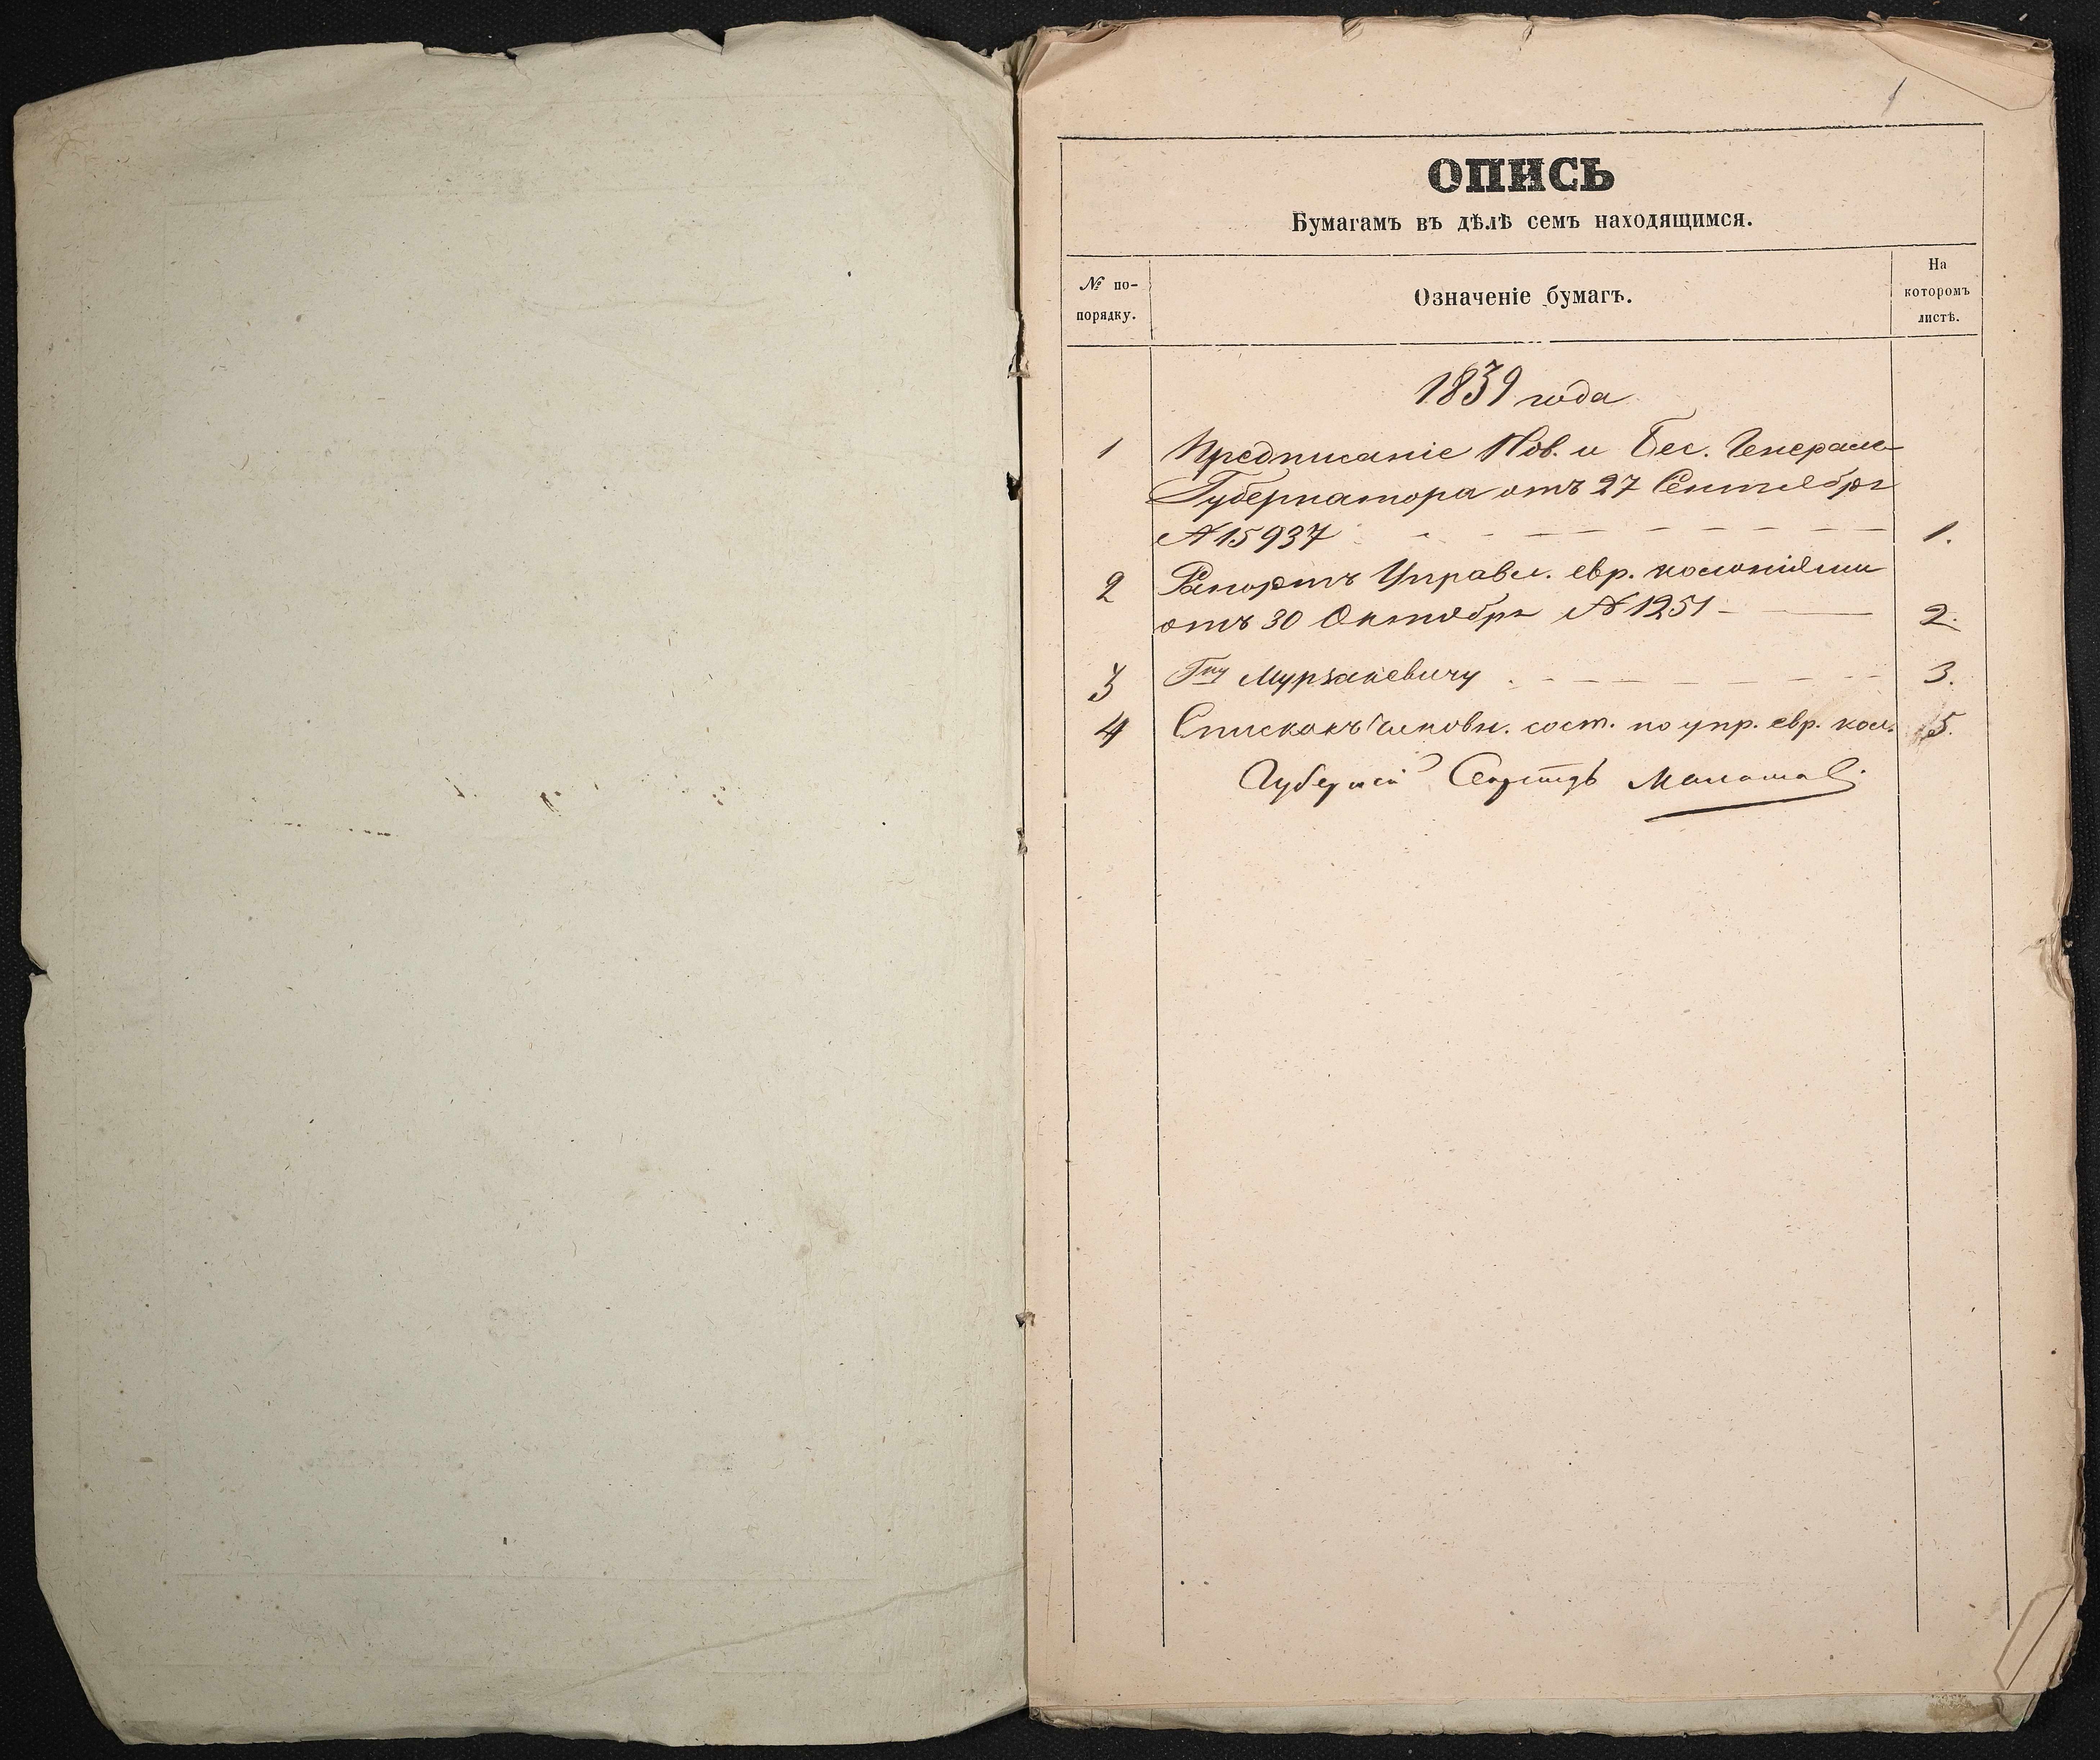 1
ОПИСЬ
Бумагамъ въ дѣлѣ семъ находящимся.
№ по-
порядку.
Означеніе бумагъ.
На
которомъ
листѣ.
1839 года
1 Предписаніе Нов. и Бес. Генералъ
Губернатора отъ 27 Сентября
№ 15937 1.
2 Рапортъ Управл. евр. колоніями
отъ 30 Октября № 1251 2.
3 Гну Мурзакевичу 3.
4 Списокъ чиновн. сост. по упр. евр. кол. 5.
Губернскій Секретарь